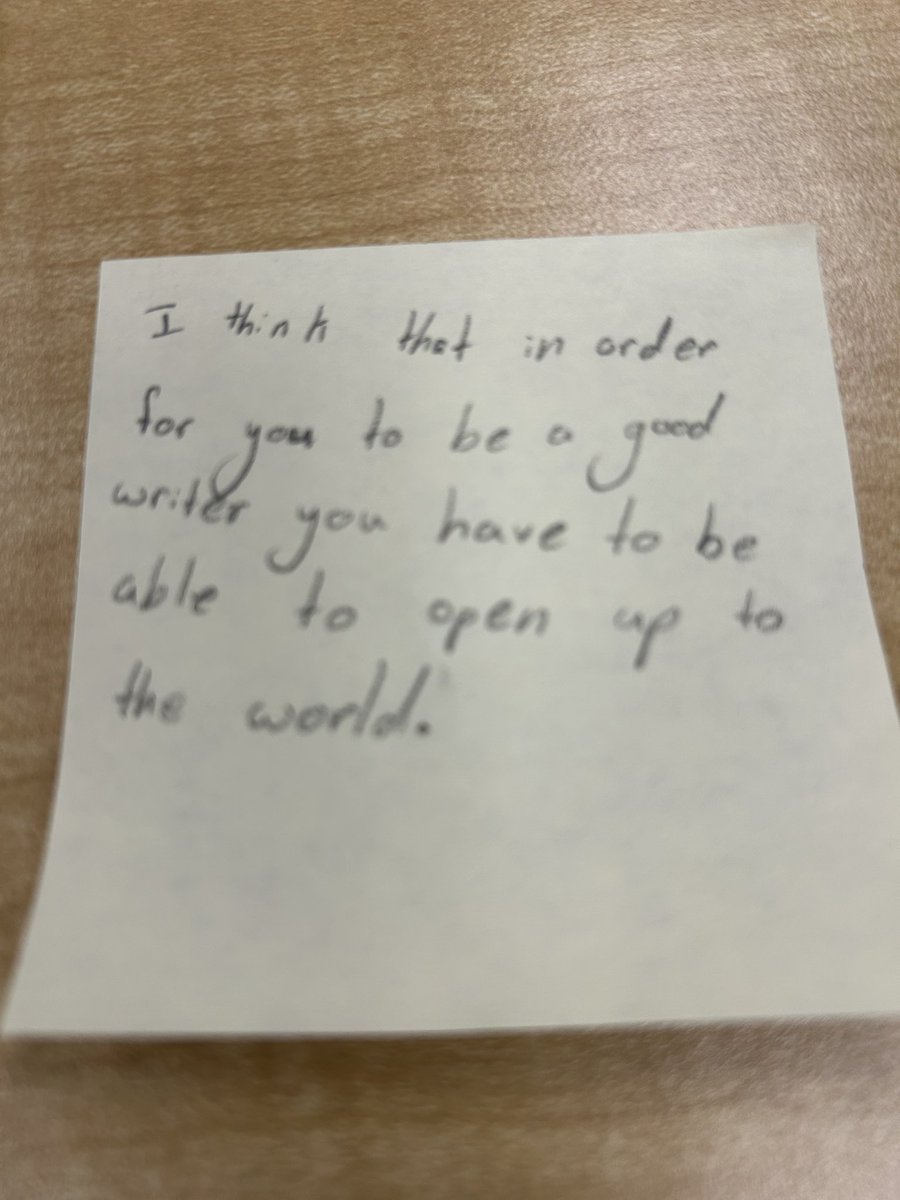 I think that in order
for you to be a good
writer you have to be
able to open up to
the world.